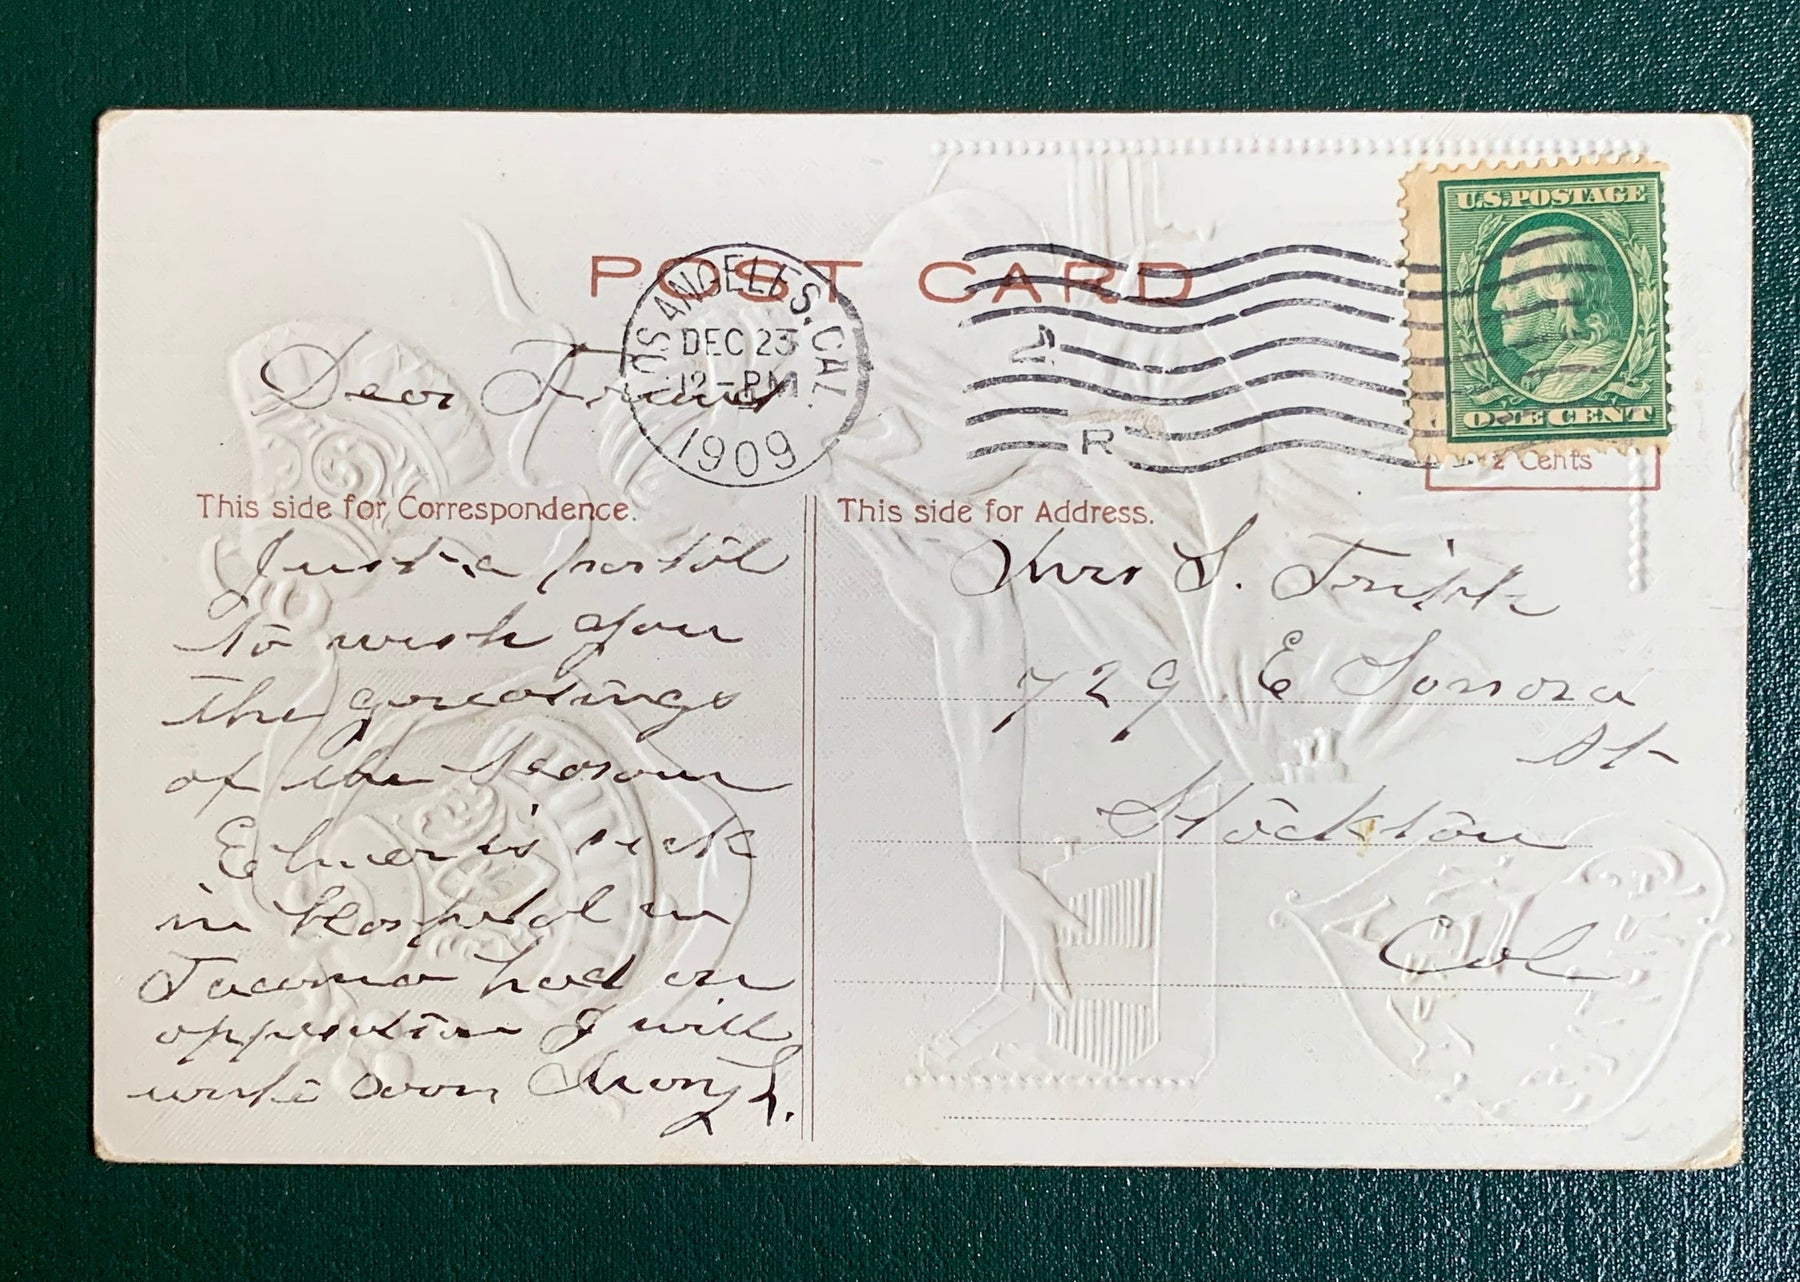 POST CARD
LOS ANGELES, CAL.
DEC 23
12-PM
1909
R
U.S. POSTAGE
ONE CENT
2 Cents
Dear Friend
This side for Correspondence.
Just a postal
to wish you
the greetings
of the Season
Elmer is sick
in Hospital in
Tacoma had an
opperation I will
write soon Mary L.
This side for Address.
Mrs S.
729 E Sonora
St
Stockton
Cal